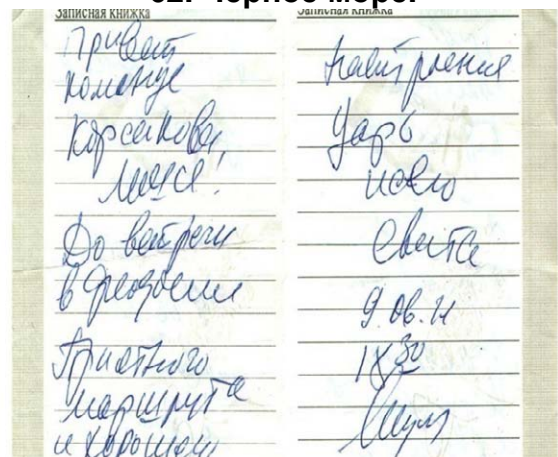 Черное море.
Записная книжка
Привет
команде
Корсакова,
До встречи
в Феодосии
Приятного
маршрута
и хорошего
Записная книжка
настроения
Царь
и его
Свита
18 30